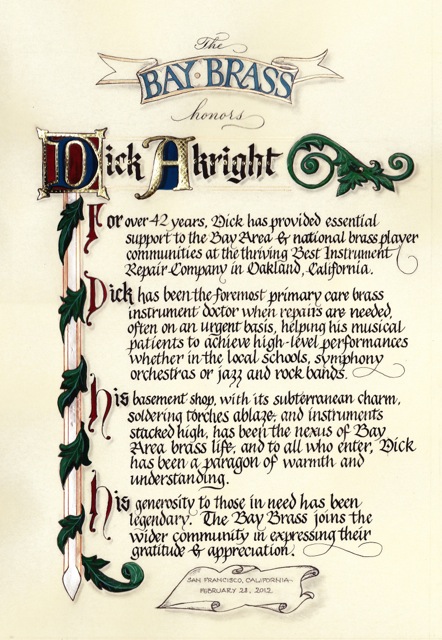 The
BAY · BRASS
honors
Dick Akright
For over 42 years, Dick has provided essential
support to the Bay Area & national brass player
communities at the thriving Best Instrument
Repair Company in Oakland, California.
Dick has been the foremost primary care brass
instrument doctor when repairs are needed,
often on an urgent basis, helping his musical
patients to achieve high-level performances
whether in the local schools, symphony
orchestras or jazz and rock bands.
His basement shop, with its subterranean charm,
soldering torches ablaze, and instruments
stacked high, has been the nexus of Bay
Area brass life, and to all who enter, Dick
has been a paragon of warmth and
understanding.
His generosity to those in need has been
legendary. The Bay Brass joins the
wider community in expressing their
gratitude & appreciation.
SAN FRANCISCO, CALIFORNIA
FEBRUARY 28, 2012